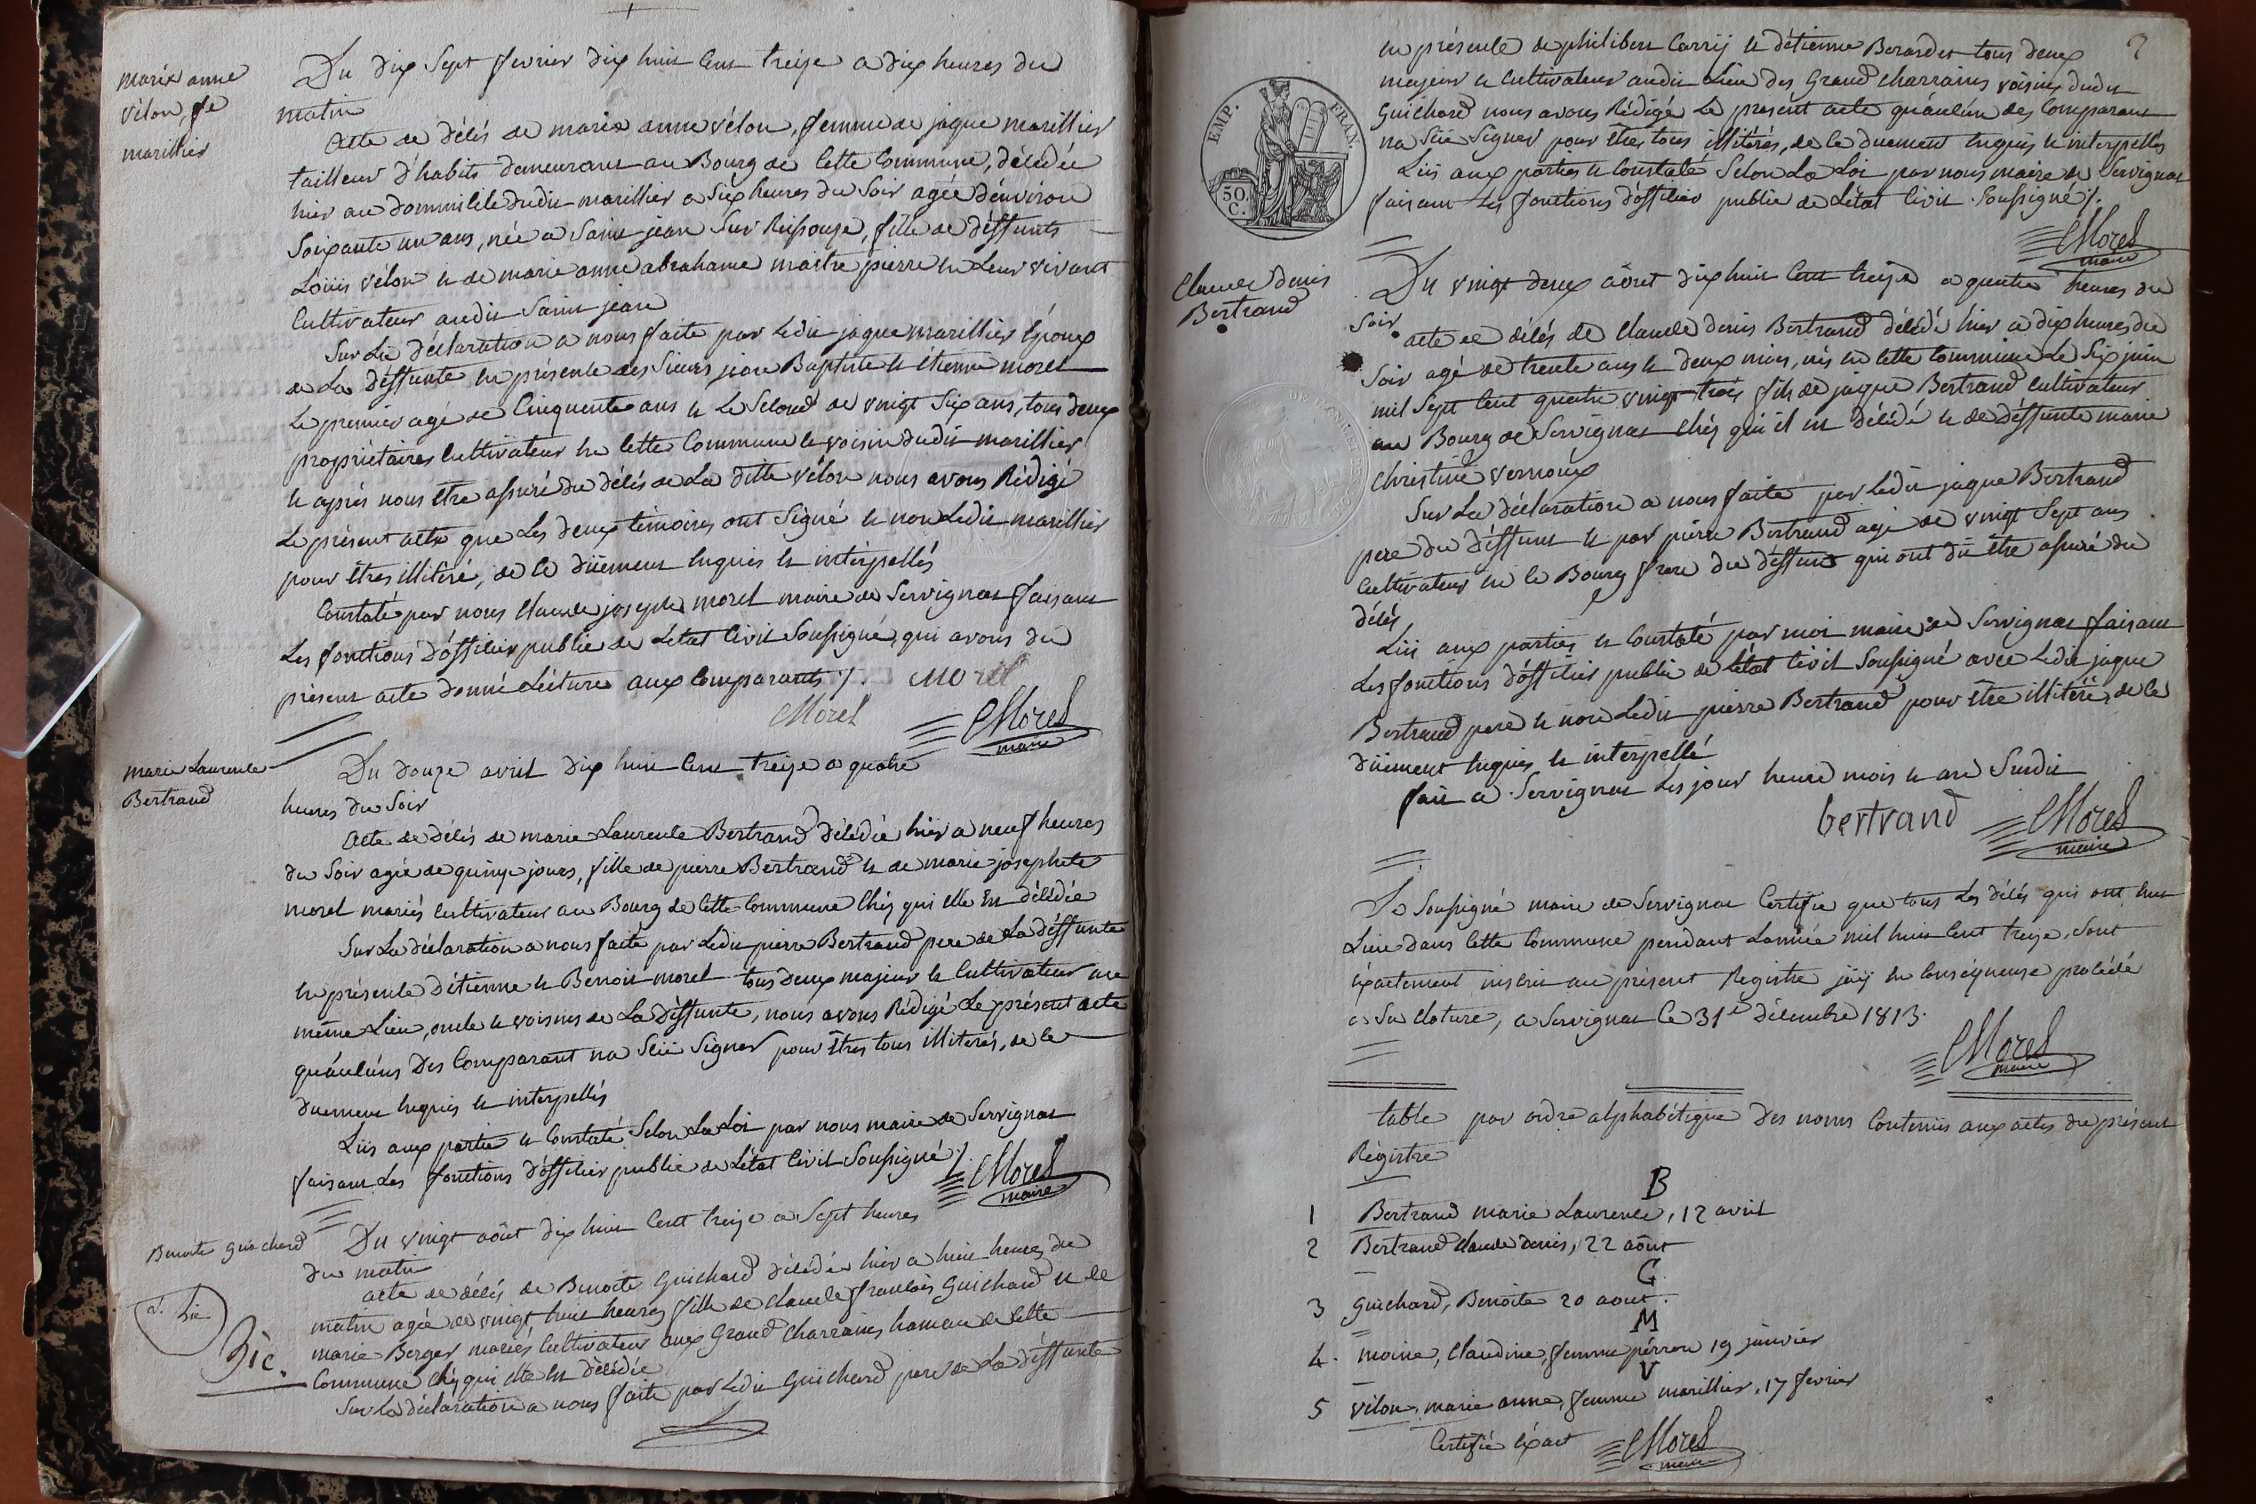 marie anne
vélon, fe
marillier
Du dix Sept fevrier dix huit Cent treize a dix heures du
matin
Acte de décés de marie anne vélon, femme de jaque marillier
tailleur d'habits demeurant au Bourg de Cette Commune, décédée
hier au dommicile dudit marillier a Six heures du Soir agée d'énviron
Soixante un ans, née a Saint jean Sur Reissouze, fille de déffunts
Loüis vélon et de marie anne abrahame maitre pierre en Leur vivant
Cultivateur audit Saint jean
Sur La déclaration a nous faite par Ledit jaque marillier Epoux
de La déffunte en présence des Sieurs jean Baptiste et étienne morel
Le premier agé de Cinquente ans et Le Second de vingt Six ans, tous deux
propriétaires Cultivateur en Cette Commune et voisin dudit marillier
et aprés nous étre assuré du décés de La ditte vélon nous avons Rédigé
Le présent acte que Les deux témoins ont Signé et non Ledit marillier
pour étres illitéré, de Ce düement Enquis et intérpellés
Constaté par nous Claude joseph morel maire de Servignat faisant
Les fonctions d'officier public de L'état Civil Soussigné, qui avons du
présent acte donné Lécture aux Comparants ./. Morel
Morel CMorel
maire
marie Laurence
Bertrand
Du douze avril dix huit Cent treize a quatre
heures du Soir
Acte de décés de marie Laurence Bertrand décédée hier a neuf heures
du Soir agée de quinze jours, fille de pierre Bertrand et de marie josephete
morel mariés Cultivateur au Bourg de Cette Commune Chéz qui elle Est décédée
Sur La déclaration a nous faite par Ledit pierre Bertrand pere de La déffunte
en présence d'étienne et Benoit morel tous deux majeur et Cultivateur au
méme Lieu, oncle et voisins de La déffunte, nous avons Rédigé Le présent acte
qu'auc'uns Des Comparant n'a Sçü Signer pour étres tous illiterés, de Ce
duement Enquis et interpellés
Lüs aux partie et Constaté Selon La Loi par nous maire de Servignat
faisant Les fonctions d'officier public de L'état Civil Soussigné ./. CMorel
maire
Benoite Guichard
Du vingt aôut dix huit Cent treize a Sept heures
du matin
acte de décés de Benoite Guichard décédée hier a huit heures du
matin agée de vingt huit heures fille de Claude françois Guichard et de
marie Berger mariés Cultivateur aux Grand Charraines hameau de Cette
Commune Chéz qui elle Est décédée
Sur La déclaration a nous faite par Ledit Guichard pere de La déffunte
2
en présence de philibert Carrij et d'étienne Berardet tous deux
majeur et Cultivateur audit Lieu des Grand Charraines voisins dudit
Guichard nous avons Rédigé Le present acte qu'auc'un des Comparant
na Sçü Signer pour étres tous illitérés, de Ce duement Enquis et interpellés
Lüs aux parties et Constaté Selon La Loi par nous maire de Servignat
faisant Les fonctions d'officier public de L'état Civil Soussigné ./.
CMorel
maire
EMP. FRAN.
50.
C.
Claude Denis
Bertrand
Du vingt deux aôut dix huit Cent treize a quatre heures du
Soir
acte de décés de Claude denis Bertrand décédé hier a dix heures du
Soir agé de trente ans et deux mois, nés en Cette Commune Le Six juin
mil Sept Cent quatre vingt trois fils de jaque Bertrand Cultivateur
au Bourg de Servignat Chéz qui il est décédé et de déffunte marie
Christine vernoux
Sur La déclaration a nous faite par Ledit jaque Bertrand
pere du déffunt et par pierre Bertrand agé de vingt Sept ans
Cultivateur en Ce Bourg frere du déffunt qui ont dü étre assuré du
décés
Lüs aux parties et Constaté par moi maire de Servignat faisant
Les fonctions d'officier public de L'état Civil Soussigné avec Ledit jaque
Bertrand pere et non Ledit pierre Bertrand pour étre illitéré, de Ce
düement Enquis et interpellé
fait a Servignat Les jour heure mois et an Susdit
bertrand CMorel
maire
Je Soussigné maire de Servignat Certifie que tous Les décés qui ont Eut
Lieu dans Cette Commune pendant L'année mil huit Cent treize, Sont
Exactement inscrit au présent Registre j'aij en Conséquense procédé
a Sa cloture, a Servignat Ce 31e décembre 1813.
CMorel
maire
table par ordre alphabétique Des noms Contenus aux actes du présent
Régistre
B
1 Bertrand marie Laurence, 12 avril
2 Bertrand Claude denis, 22 aôut
G
3 Guichard, Benoite 20 aout.
M
4. moine, Claudine, femme pérron 19 janvier
V
5 vélon, marie anne, femme marillier, 17 fevrier
Certifié Exact CMorel
maire